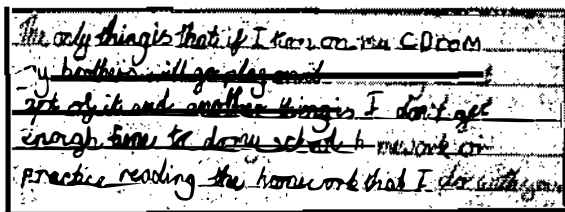 The only thing is that if I turn on my CD rom
my brothers will go play on it
of it and another thing is I don't get
enough time to do my school homework or
practice reading the homework that I do with you